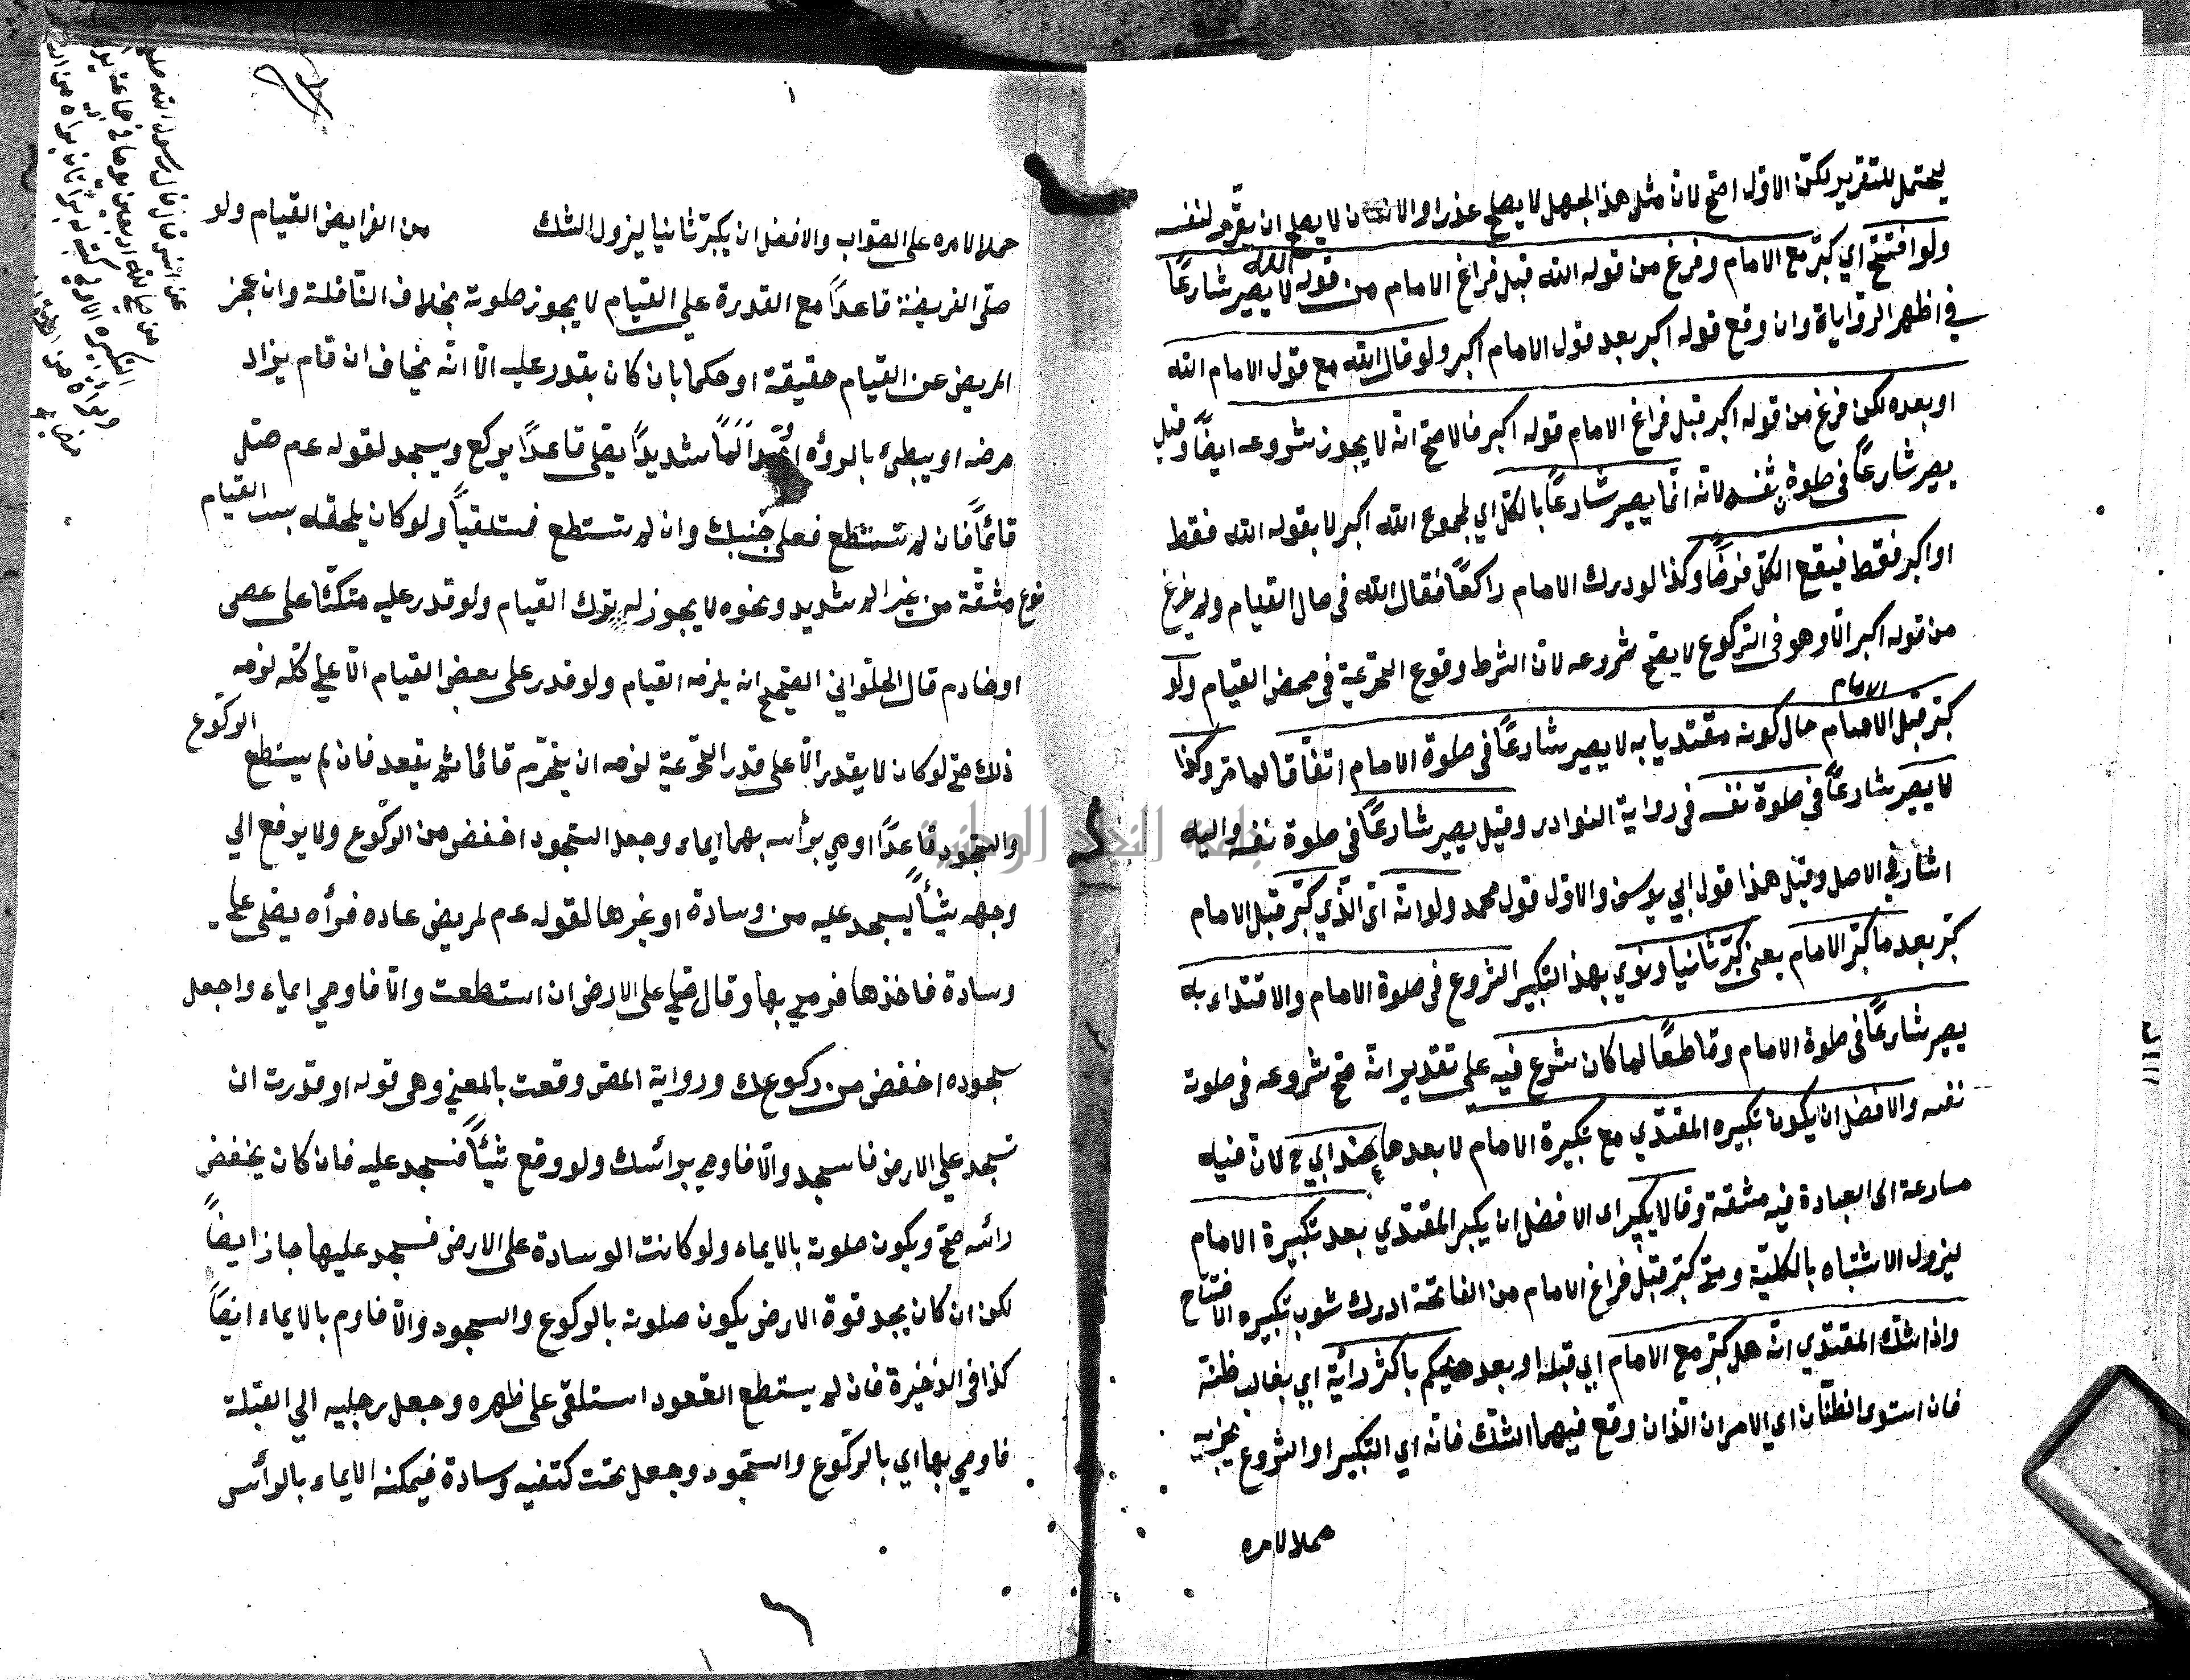 يحتمل للتقرير لكن الاوّل اصح لانّ مثل هذا الجهل لا يصلح عذرا والانسان لا يصلح ان يقرّر لنفسه
ولو افتتح اي كبّر مع الامام وفرغ من قوله الله قبل فراغ الامام من قوله الله لا يصير شارعًا
في اظهر الرواياة وان وقع قوله اكبر بعد قول الامام اكبر ولو قال الله مع قول الامام الله
او بعده لكن فرغ من قوله اكبر قبل فراغ الامام قوله اكبر فالاصح انه لا يجوز شروعه ايضًا وقيل
يصير شارعًا في صلوة نفسه لانه انّما يصير شارعًا بالكل اي لمجموع الله اكبر لا بقوله الله فقط
او اكبر فقط فيقع الكلّ فرضًا وكذا لو درك الامام راكعًا فقال الله في حال القيام ولم يفرغ
من قوله اكبر الّا وهو في الرّكوع لا يصح شروعه لانّ الشرط وقوع التحريمة في محض القيام ولو
كبّر قبل الامام حال كونه مقتديا به لا يصير شارعًا في صلوة الامام اتفّاقا لما مرّ وكذا
الامام
لا يصير شارعًا في صلوة نفسه في رواية النوادر وقيل يصير شارعًا في صلوة نفسه واليه
اشار في الاصل وقيل هذا قول ابي يوسف والاوّل قول محمد ولو انّه اي الّذي كبّر قبل الامام
كبّر بعد ما كبّر الامام يعني كبّر ثانيا ونوي بهذا التكبير الشروع في صلوة الامام والاقتداء به
يصير شارعًا في صلوة الامام وقاطعًا لما كان شرع فيه على تقدير انّه صح شروعه في صلوة
نفسه والافضل ان يكون تكبيره المقتدي مع تكبيرة الامام لا بعدها عند ابي ح لانّ فيه
مسارعة الى العبادة فيه مشقة وقالا يكبر اى الافضل ان يكبر المقتدي بعد تكبيرة الامام
ليزول الاشتباه بالكلّية ومتى كبّر قبل فراغ الامام من الفاتحة ادرك ثوب تكبيره الافتتاح
واذا شك المقتدي انّه هل كبّر مع الامام اي قبله او بعده يحكم باكثر رائية اي بغالب ظنّه
فان استوى الظنّان اي الامران الّذان وقع فيهما الشك فانّه اي التكبير او الشروع يجزيه
حملا لامره
حملا لامره على الصّواب والافضل ان يكبّر ثانيا ليزول الشك من الفرايض القيام ولو
صلّى الفريضة قاعدًا مع القدرة على القيام لا يجوز صلوته بخلاف النّافلة وان عجز
المريض عن القيام حقيقة او حكما بان كان يقدر عليه الّا انّه يخاف ان قام يزاد
مرضه او يبطئ بالرؤه او يجد اَلَماً شديدًا يصلي قاعدًا يركع ويسجد لقوله عم صلّ
قائمًا فان لم تستطع فعلى جنبك وان لم تستطع فمستلقيًا ولو كان يلحقه بسبب القيام
نوع مشقّة من غير الم شديد ونحوه لا يجوز له ترك القيام ولو قدر عليه متكئا على عصى
او خادم قال الحلواني الصّحيح انه يلزمه القيام ولو قدر على بعض القيام الّا على كلّه لزمه
ذلك حتى لو كان لا يقدر الّا على قدر التحريمة لزمه ان يتحرّم قائما ثم يقعد فان لم يستطع الركوع
والسجود قاعدًا اومي برأسه بهما ايماء وجعل السّجود اخفض من الركوع ولا يرفع الي
وجهه شيئًا يسجد عليه من وسادة او غيرها لقوله عم لمريض عاده فرأه يصلي على
وسادة فاخذها فرمي بها وقال صلي على الارض ان استطعت والّا فاومي ايماء واجعل
سجوده اخفض من ركوعك ورواية المص وقعت بالمعني وهي قوله او قدرت ان
تسجد على الارض فاسجد والّا فاومي برائسك ولو وقع شيئًا فسجد عليه فان كان يخفض
رائسه صح ويكون صلوته بالايماء ولو كانت الوسادة على الارض فسجد عليها جاز ايضًا
لكن ان كان يجد قوة الارض يكون صلوته بالركوع والسجود والّا فاوم بالايماء ايضًا
كذا في الذخيرة فان لم يستطع القعود استلقى على ظهره وجعل رجليه الي القبلة
فاومي بها اي بالرّكوع والسّجود وجعل تحت كتفيه وسادة فيمكنه الايماء بالرأس
جامعة النجاح الوطنية